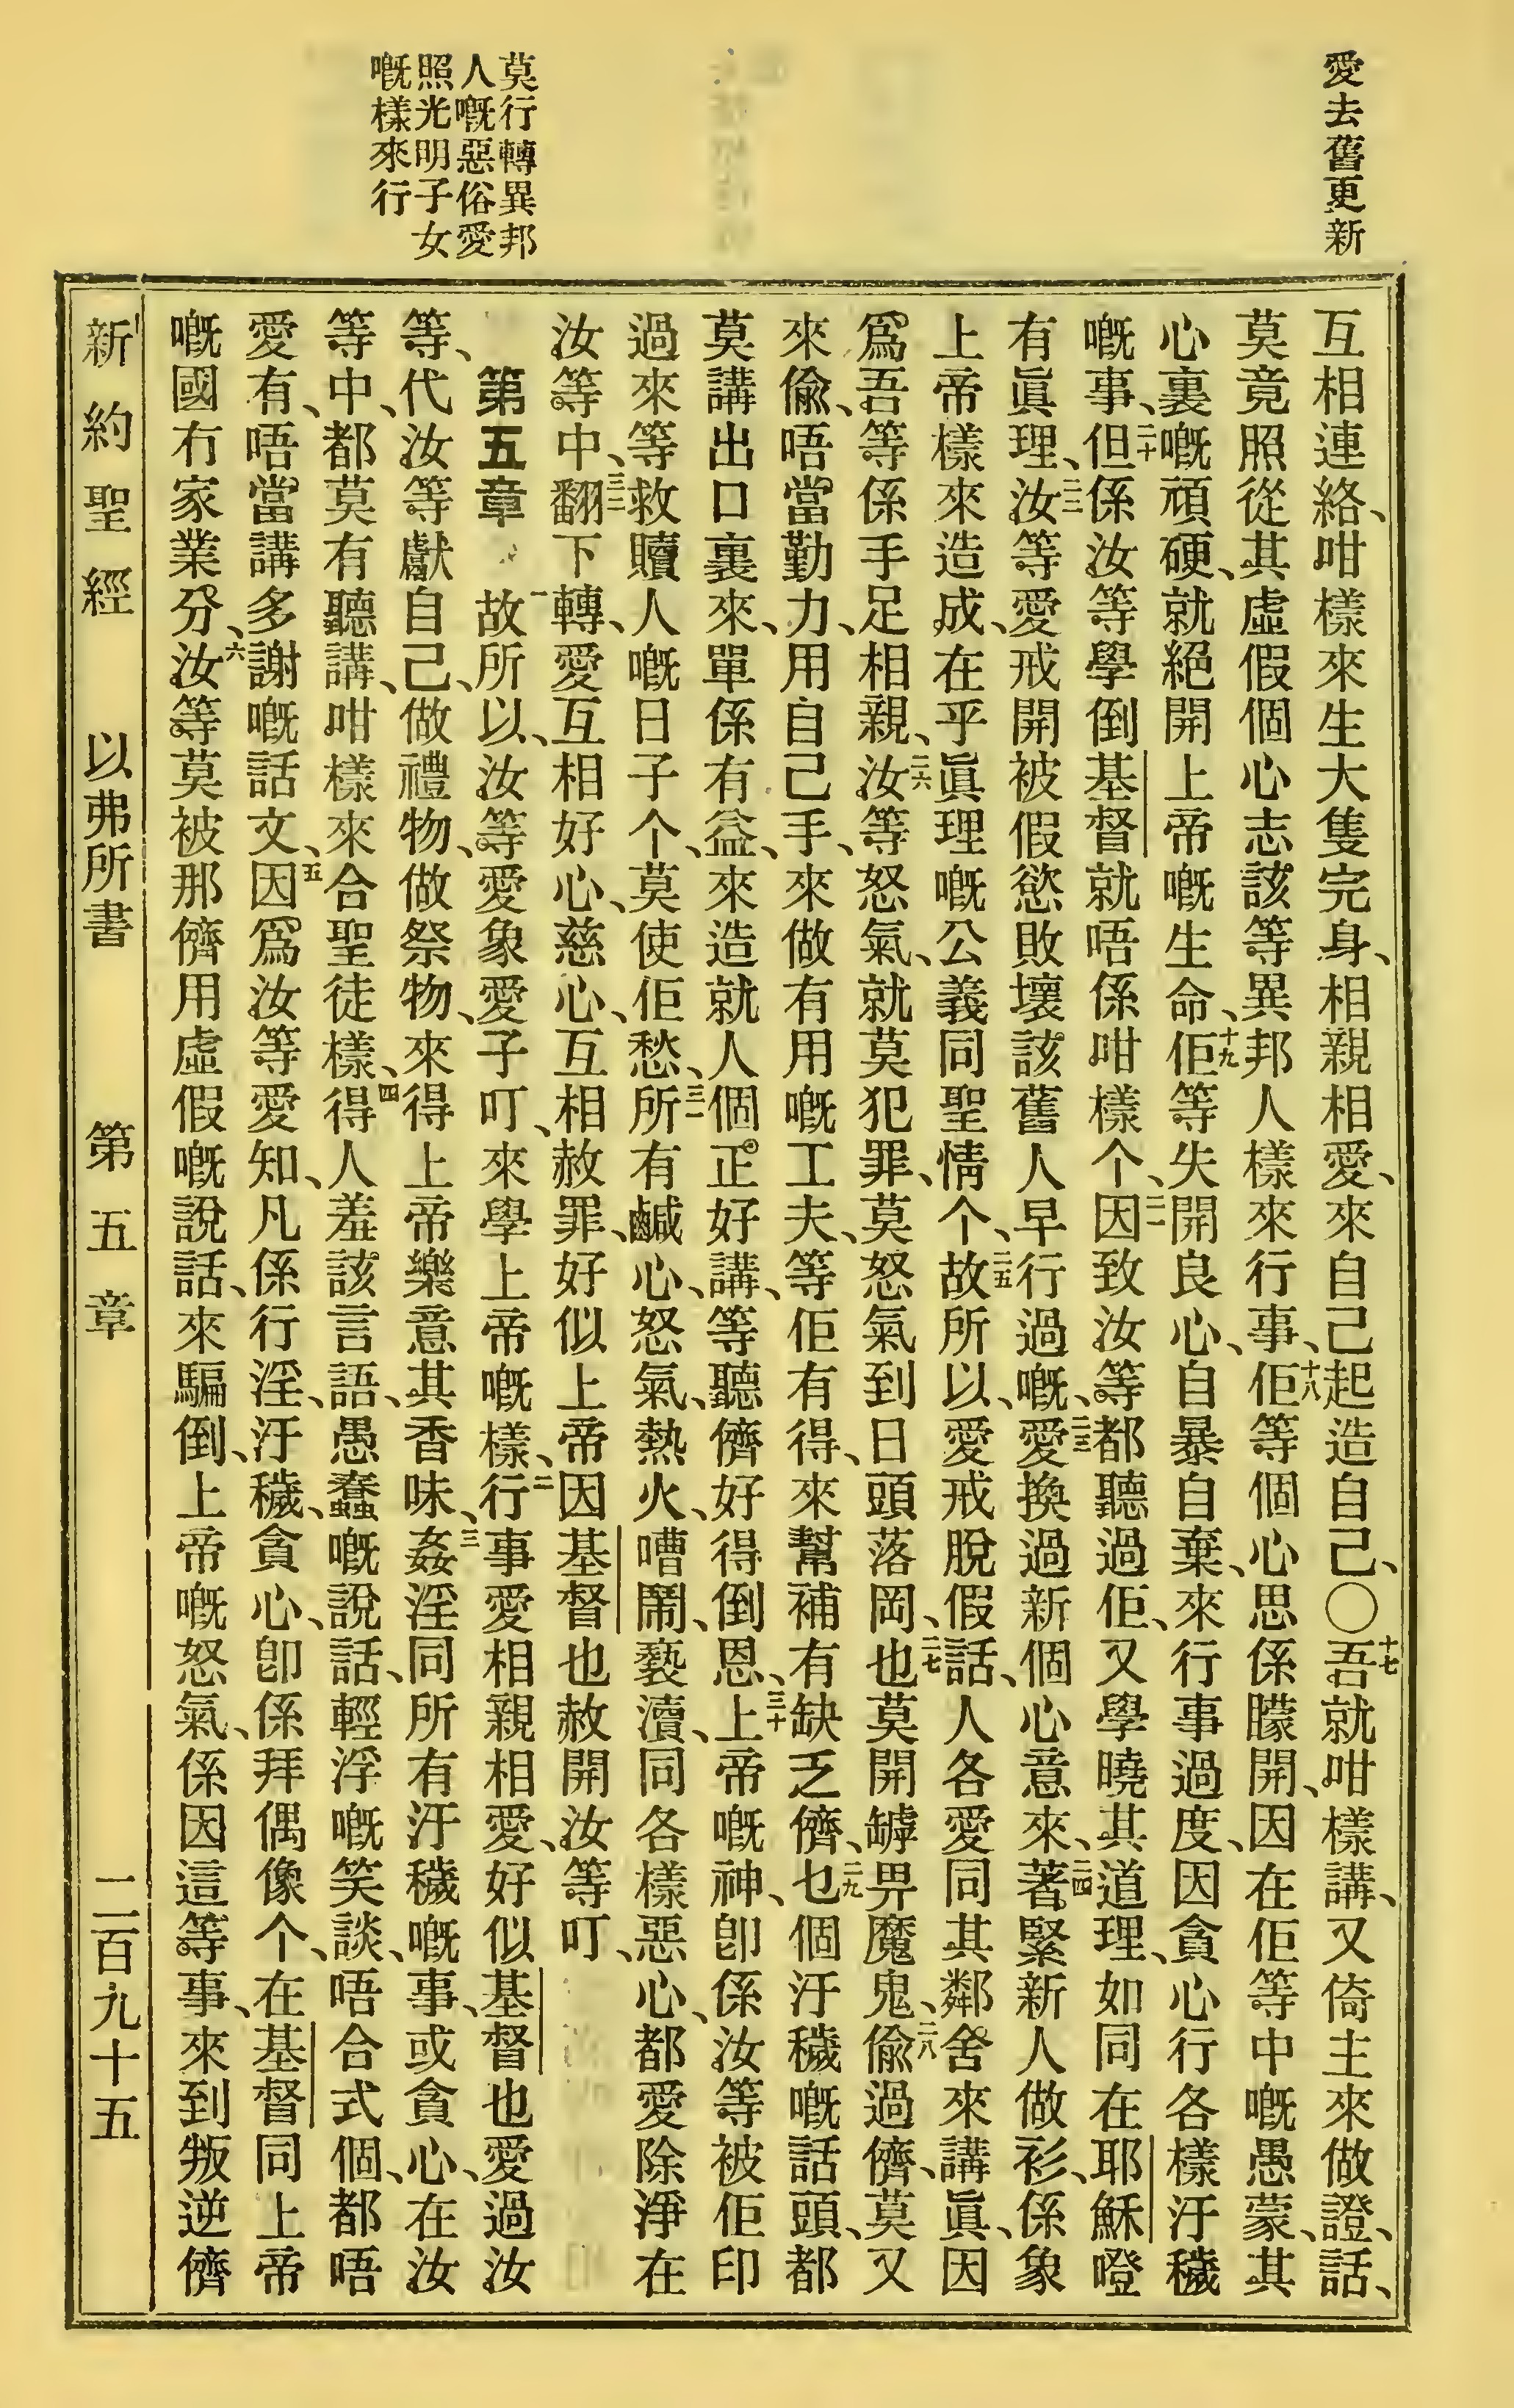 愛去舊更新
莫行轉異邦
人嘅惡俗愛
照光明子女
嘅樣來行
互相連絡、咁樣來生大隻完身、相親相愛、來自己起造自己、〇十七吾就咁樣講、又倚主來做證、話、
莫竟照從其虛假個心志該等異邦人樣來行事、十八佢等個心思係矇開、因在佢等中嘅愚蒙、其
心裏嘅頑硬、就絕開上帝嘅生命、十九佢等失開良心、自暴自棄、來行事過度、因貪心行各樣汙穢
嘅事、二十但係汝等學倒基督就唔係咁樣个、二一因致汝等都聽過佢、又學曉其道理、如同在耶穌嶝
有眞理、二二汝等愛戒開被假慾敗壞該舊人早行過嘅、二三愛換過新個心意來、二四著緊新人做衫、係象
上帝樣來造成、在乎眞理嘅公義同聖情个、二五故所以、愛戒脫假話、人各愛同其鄰舍來講眞、因
爲吾等係手足相親、二六汝等怒氣、就莫犯罪、莫怒氣到日頭落岡、二七也莫開罅畀魔鬼、二八偸過儕、莫又
來偸、唔當勤力、用自己手、來做有用嘅工夫、等佢有得、來幫補有缺乏儕、二九也個汙穢嘅話頭、都
莫講出口裏來、單係有益、來造就人個正好講、等聽儕好得倒恩、三十上帝嘅神、卽係汝等被佢印
過來等救贖人嘅日子个、莫使佢愁、三一所有鹹心、怒氣、熱火、嘈鬧、褻瀆、同各樣惡心、都愛除淨在
汝等中、三二翻下轉、愛互相好心、慈心、互相赦罪、好似上帝因基督也赦開汝等叮、
第五章　一故所以、汝等愛象愛子叮、來學上帝嘅樣、二行事愛相親相愛、好似基督也愛過汝
等、代汝等獻自己、做禮物、做祭物、來得上帝樂意其香味、三姦淫同所有汙穢嘅事、或貪心、在汝
等中、都莫有聽講、咁樣來合聖徒樣、四得人羞該言語、愚蠢嘅說話、輕浮嘅笑談、唔合式個、都唔
愛有、唔當講多謝嘅話文、五因爲汝等愛知、凡係行淫、汙穢、貪心、卽係拜偶像个、在基督同上帝
嘅國冇家業分、六汝等莫被那儕用虛假嘅說話、來騙倒、上帝嘅怒氣、係因這等事、來到叛逆儕
新約聖經　以弗所書　第五章　二百九十五